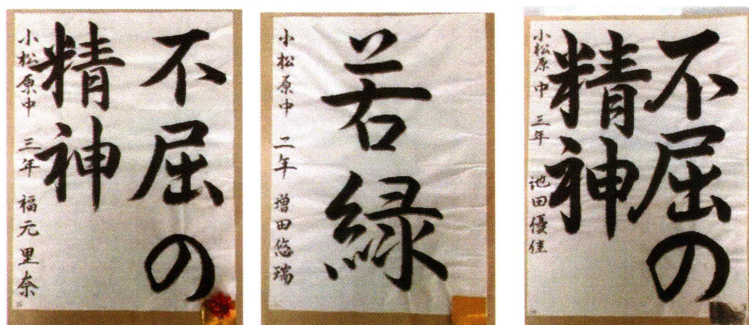 不屈の
精神
小松原中 三年 福元里奈
若緑
小松原中 二年 増田悠瑞
不屈の
精神
小松原中 三年 池田優佳